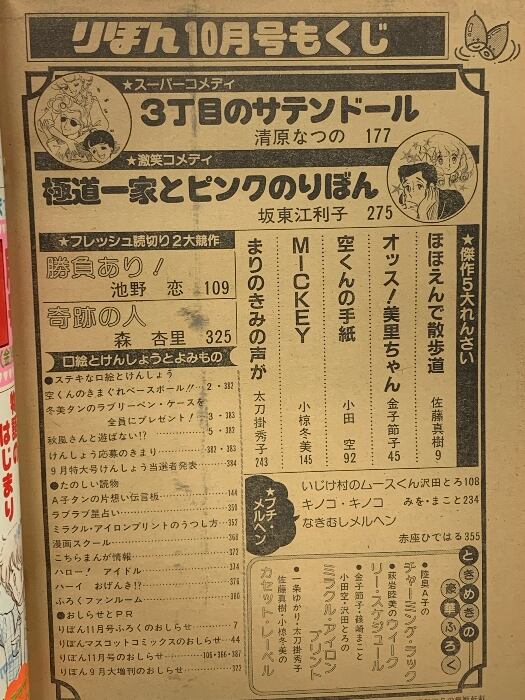 りぼん10月号もくじ
★スーパーコメディ
3丁目のサテンドール
清原なつの 177
★激笑コメディ
極道一家とピンクのりぼん
坂東江利子 275
★フレッシュ読切り2大競作
勝負あり!
池野 恋 109
奇跡の人
森 杏里 325
★傑作5大れんさい
ほほえんで散歩道 佐藤真樹 9
オッス!美里ちゃん 金子節子 45
空くんの手紙 小田 空 92
MICKEY 小椋冬美 145
まりのきみの声が 太刀掛秀子 243
口絵とけんしょうとよみもの
●ステキな口絵とけんしょう
空くんのきまぐれベースボール!!‥2・383
冬美タンのラブリーペン・ケースを
全員にプレゼント! 3・383
秋風さんと遊ばない!? 5・382
けんしょう応募のきまり 382・383
9月特大号けんしょう当選者発表 384
●たのしい読物
A子タンの片想い伝言板 144
ラブラブ星占い 350
ミラクル・アイロンプリントのうつし方 357
漫画スクール 368
こちらまんが情報 372
ハロー! アイドル 374
ハーイ おげんき!? 376
ふろくファンルーム 380
●おしらせとPR
りぼん11月号ふろくのおしらせ 7
りぼんマスコットコミックスのおしらせ 44
りぼん11月号のおしらせ 106・366・387
りぼん9月大増刊のおしらせ 322
★プチ・メルヘン
いじけ村のムースくん 沢田とろ 108
キノコ・キノコ みを・まこと 234
なきむしメルヘン
赤座ひではる 355
ときめきの豪華ふろく
●陸奥A子の
チャーミング・ラック
●萩岩睦美のウイークリー・スケジュール
●金子節子・篠崎まこと
小田空・沢田とろの
ミラクル・アイロンプリント
●一条ゆかり・太刀掛秀子
佐藤真樹・小椋冬美の
カセット・レーベル
はじまり